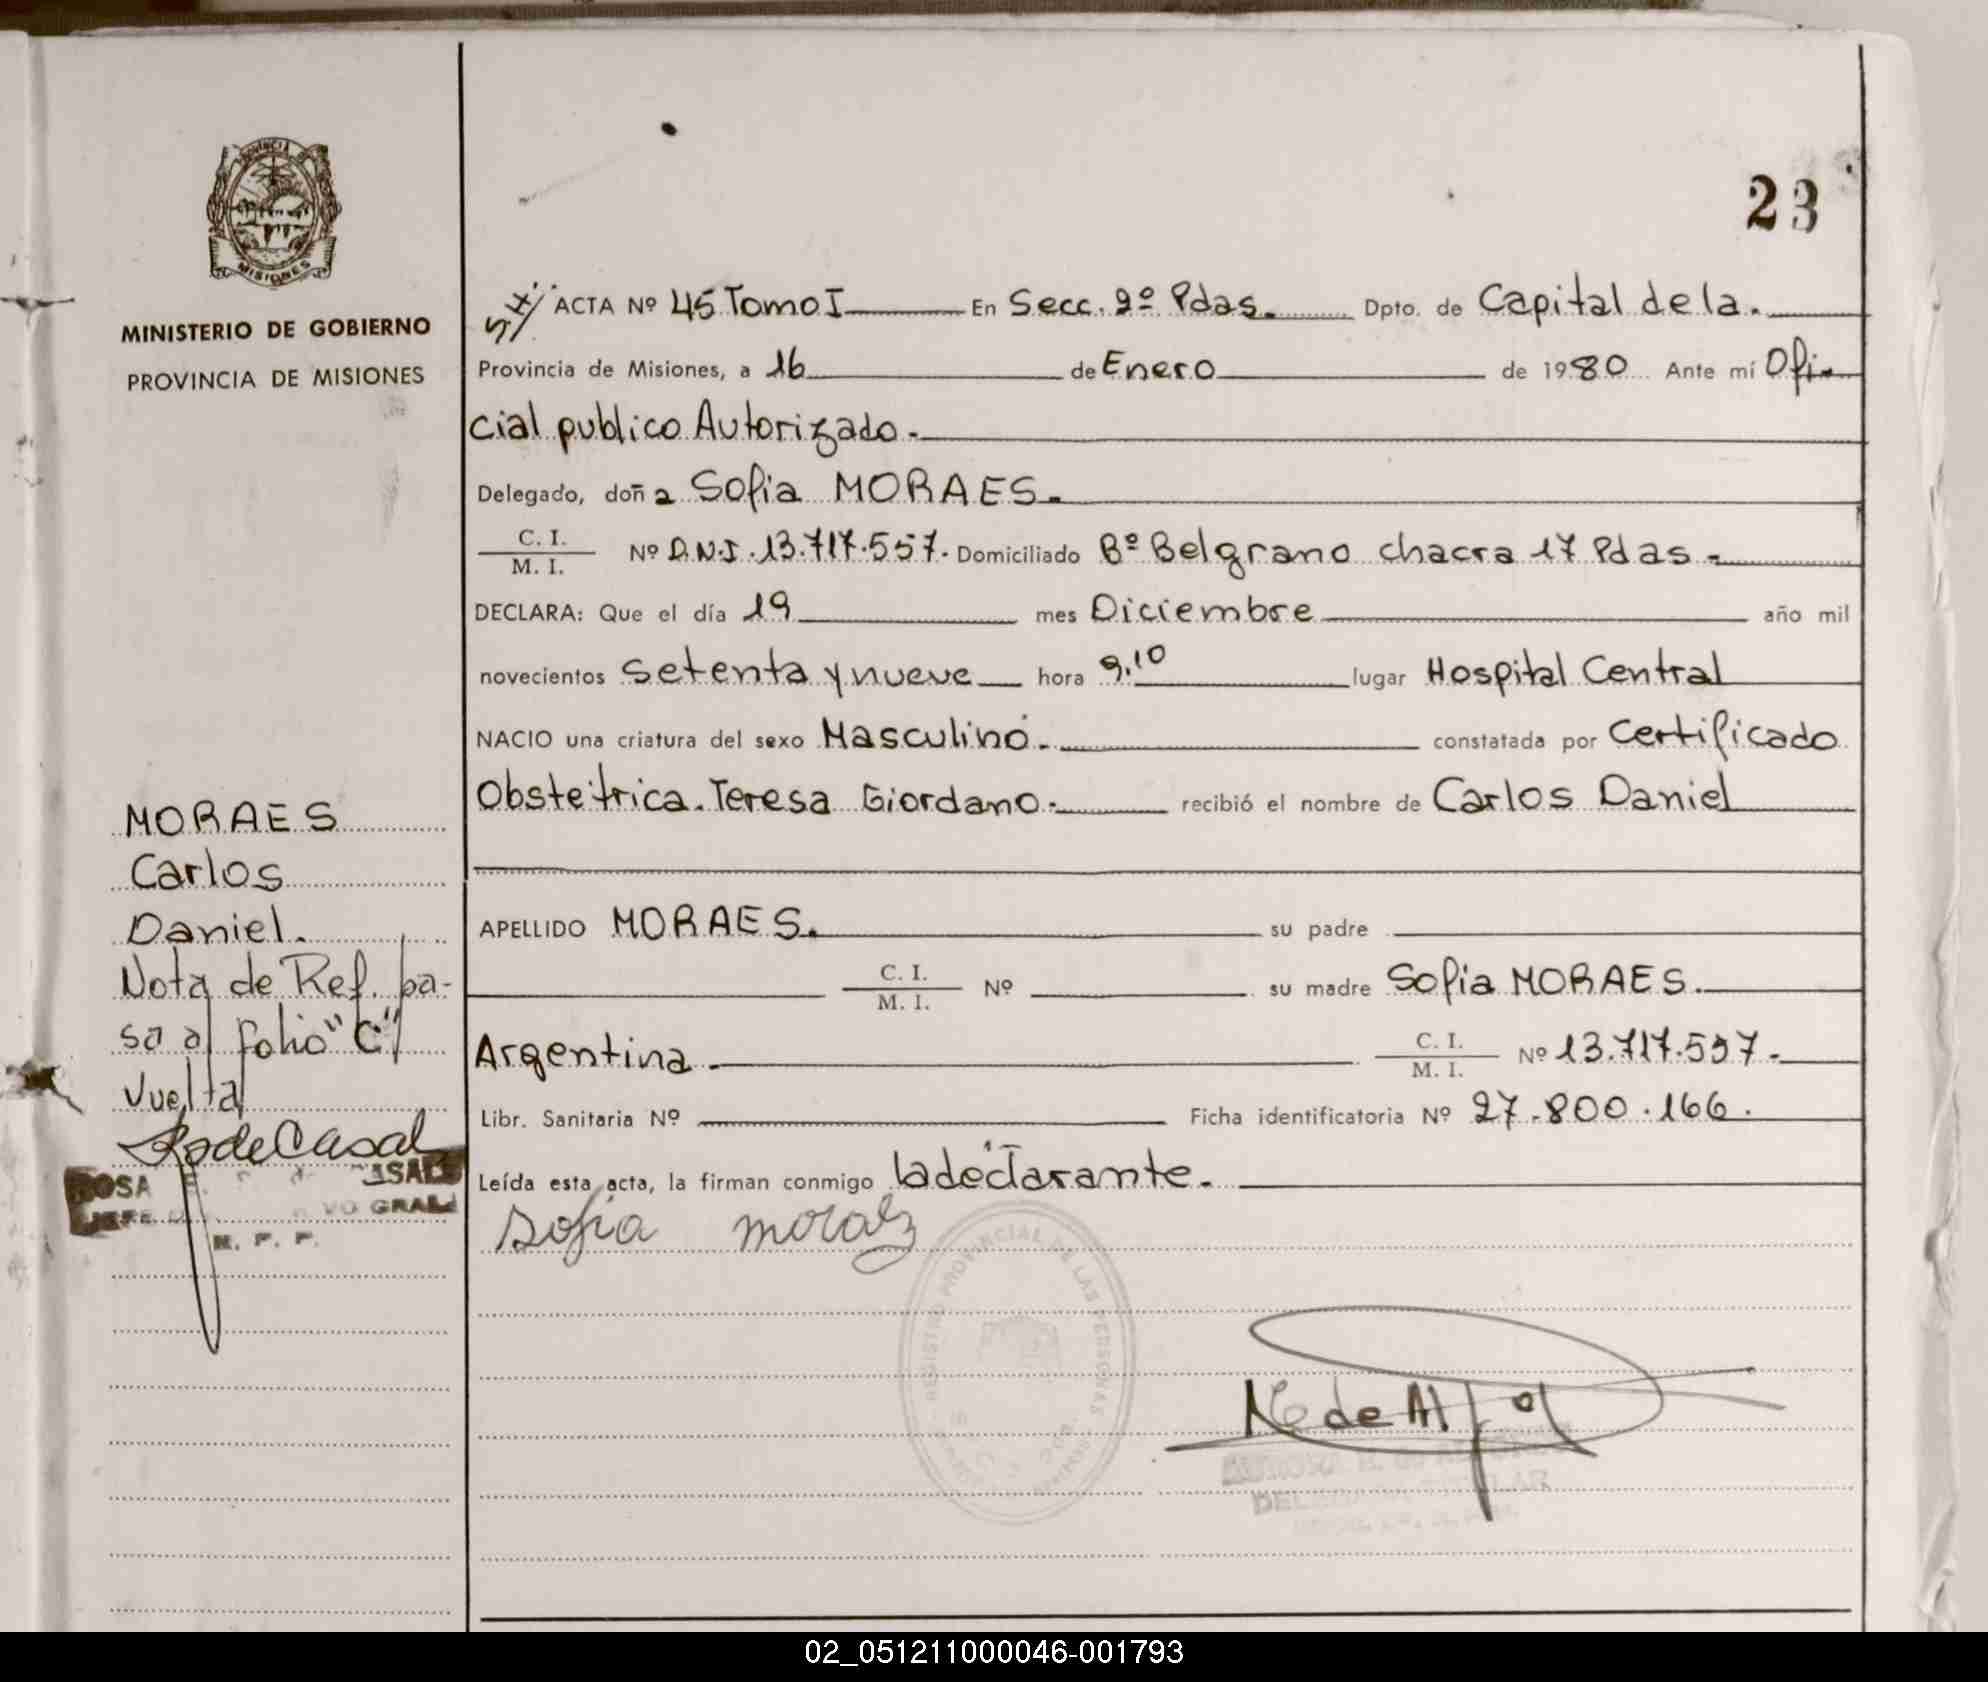 PROVINCIA DE
MISIONES
MINISTERIO DE GOBIERNO
PROVINCIA DE MISIONES
23
ACTA Nº 45 Tomo I En Secc. 2º Pdas. Dpto. de Capital de la.
Provincia de Misiones, a 16 de Enero de 1980 Ante mí Ofi-
cial publico Autorizado.
Delegado, doña Sofia MORAES.
C. I.
M. I. Nº D.N.I. 13.717.557. Domiciliado Bº Belgrano chacra 17 Pdas.
DECLARA: Que el día 19 mes Diciembre año mil
novecientos setenta y nueve hora 9.10 lugar Hospital Central
NACIO una criatura del sexo Masculino. constatada por Certificado
Obstetrica. Teresa Giordano. recibió el nombre de Carlos Daniel
APELLIDO MORAES. su padre
C. I.
M. I. Nº su madre Sofia MORAES.
Argentina. C. I.
M. I. Nº 13.717.557.
Libr. Sanitaria Nº Ficha identificatoria Nº 27.800.166.
Leída esta acta, la firman conmigo la declarante.
Sofia moraez
MORAES
Carlos
Daniel.
Nota de Ref. pa-
sa al folio "C"
vuelta
R de Casal
ROSA
JEFE
GRAL
R. P. P.
REGISTRO PROVINCIAL DE LAS PERSONAS
02_051211000046-001793